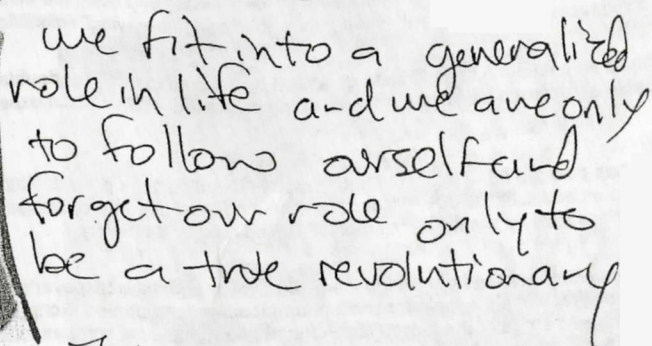 we fit into a generalized
role in life and we are only
to follow ourself and
forget our role only to
be a true revolutionary